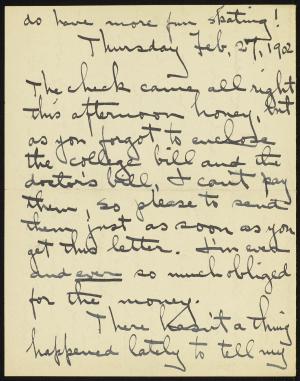 do have more fun skating!
Thursday Feb, 27, 1902
The check came all right
this afternoon honey, but
as you forgot to enclose
the college bill and the
doctor's bill, I can't pay
them, so please to send
them just as soon as you
get this letter. I'm ever
and ever so much obliged
for the money.
There hasn't a thing
happened lately to tell my